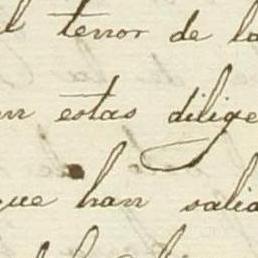 l tenor de la
en estas dilige
que han salid